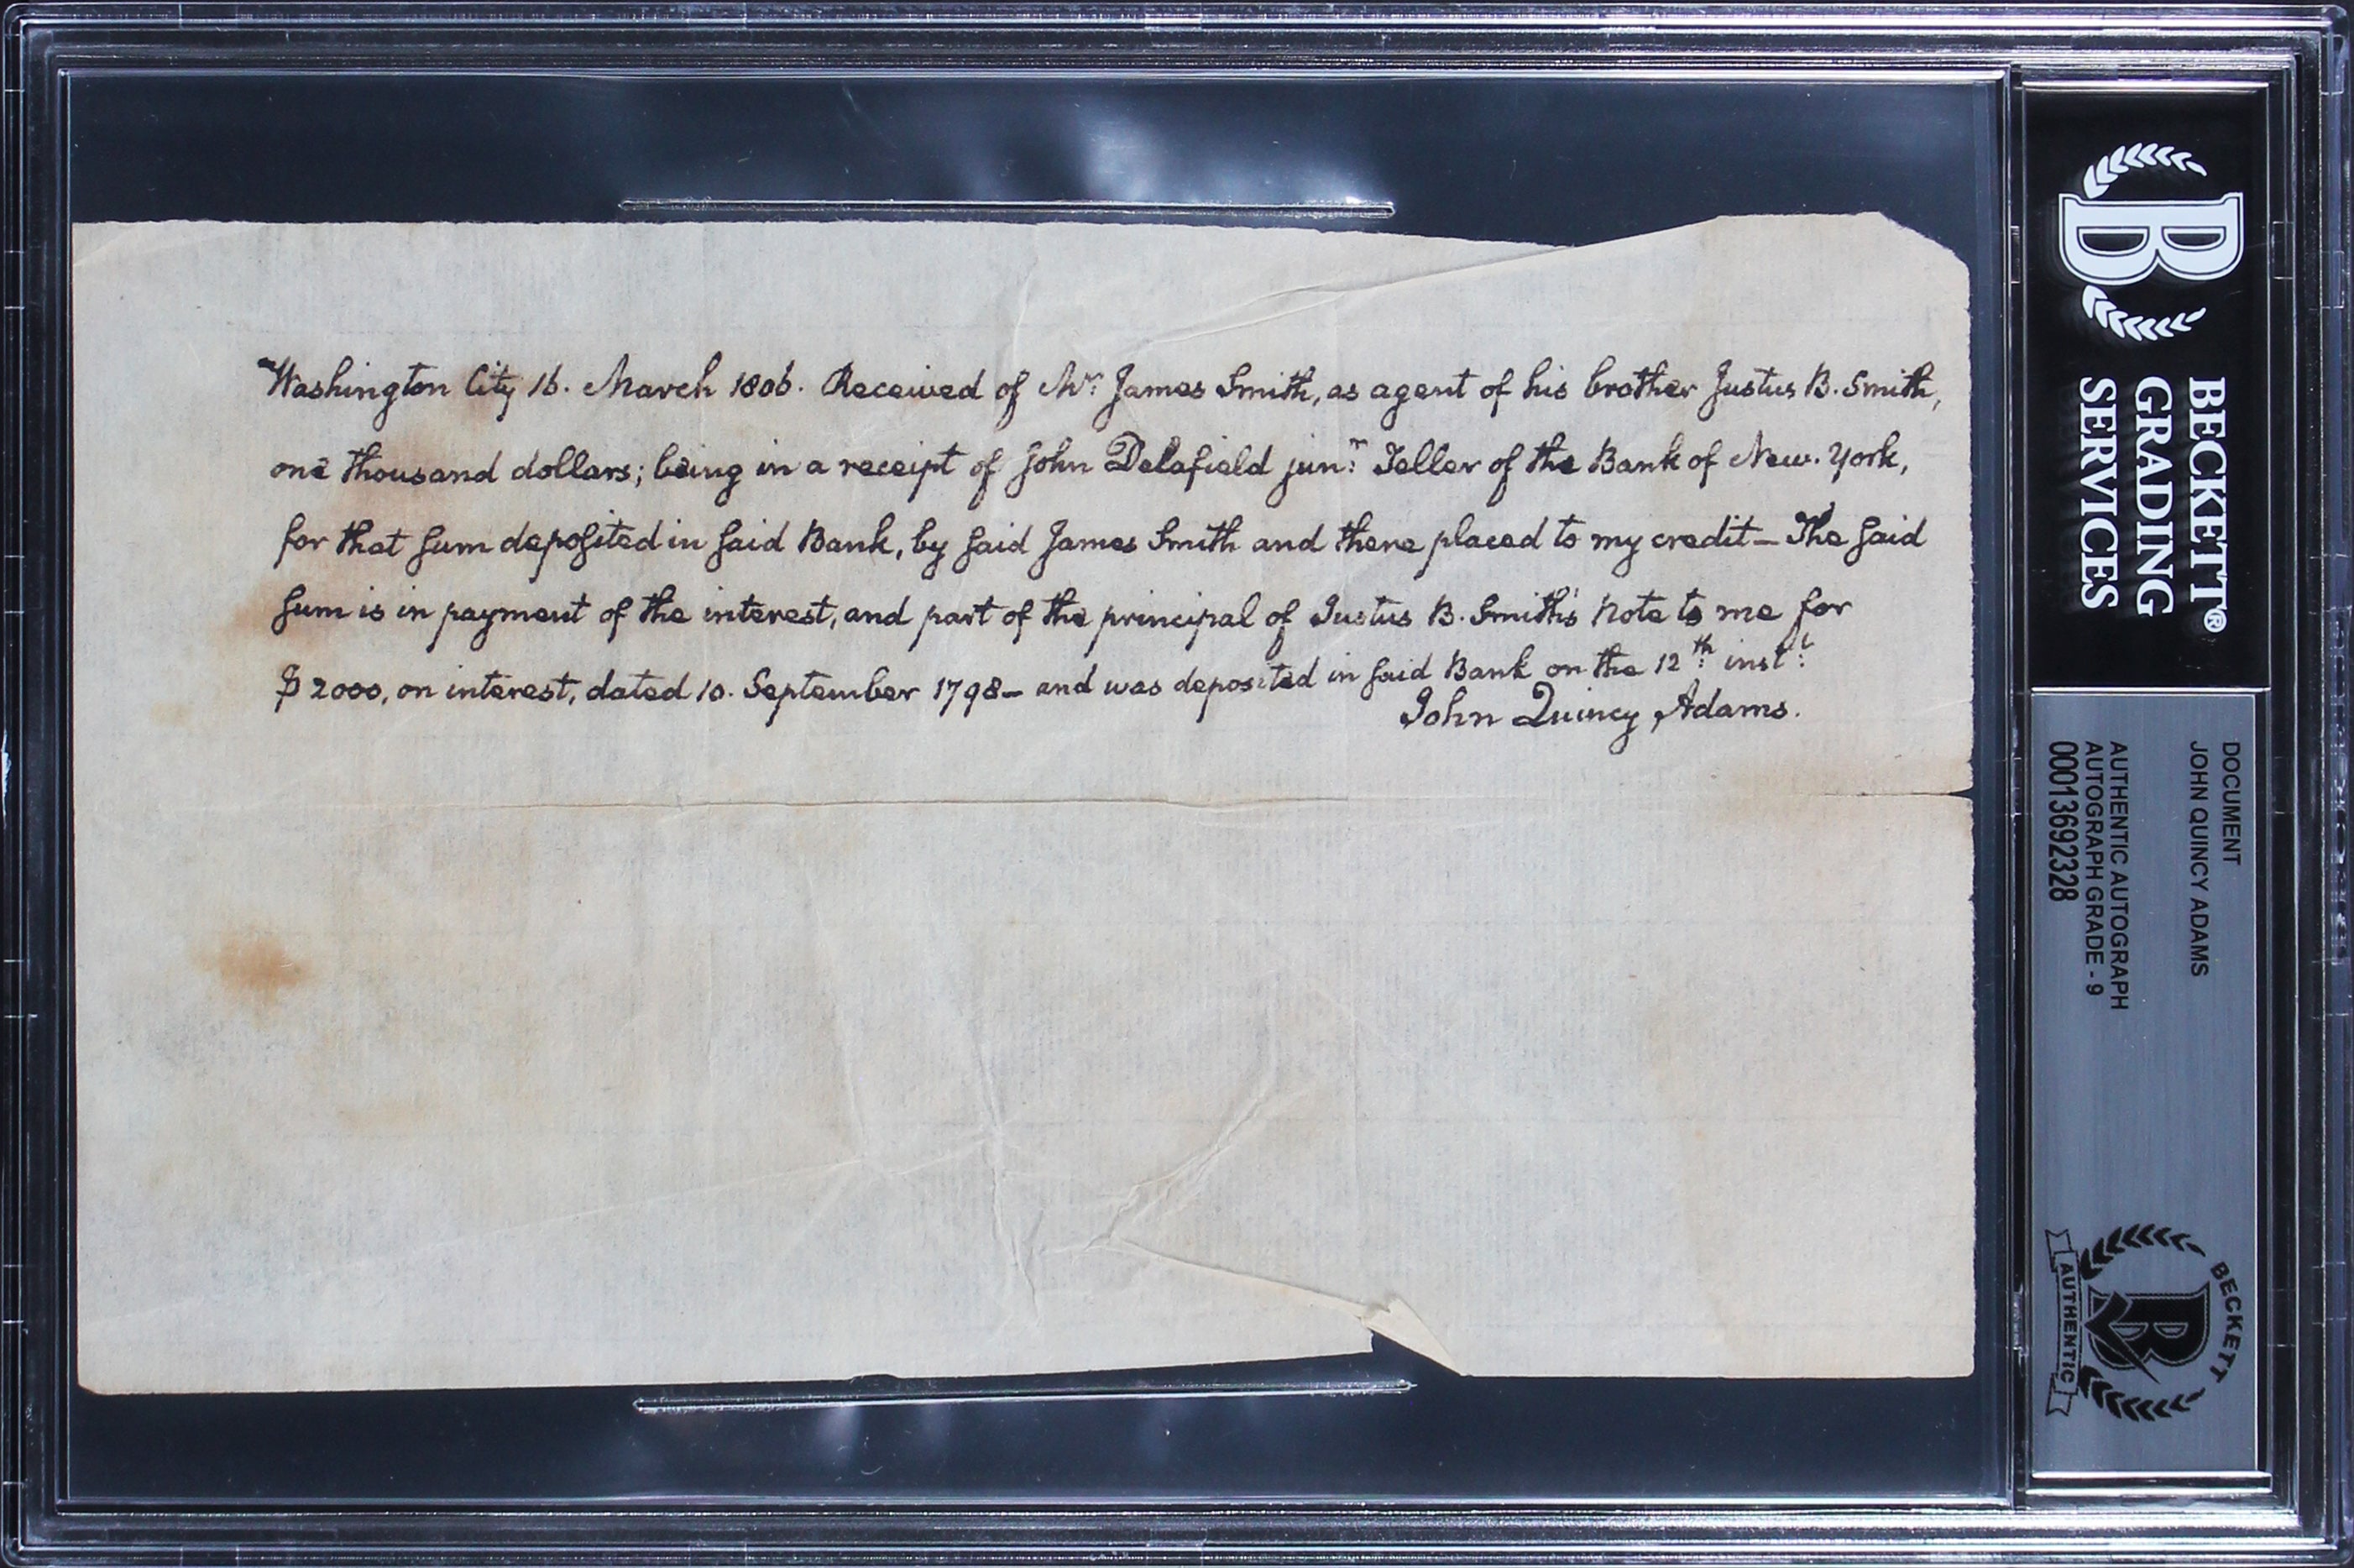 Washington City 16. March 1806. Received of Mr. James Smith, as agent of his brother Justus B. Smith,
one thousand dollars; being in a receipt of John Delafield junr. Teller of the Bank of New-York,
for that sum deposited in said Bank, by said James Smith and there placed to my credit— The said
sum is in payment of the interest, and part of the principal of Justus B. Smith's Note to me for
$2000, on interest, dated 10. September 1798— and was deposited in said Bank on the 12th. instt.
John Quincy Adams.
BECKETT®
GRADING
SERVICES
DOCUMENT
JOHN QUINCY ADAMS
AUTHENTIC AUTOGRAPH
AUTOGRAPH GRADE - 9
00013692328
BECKETT
AUTHENTIC